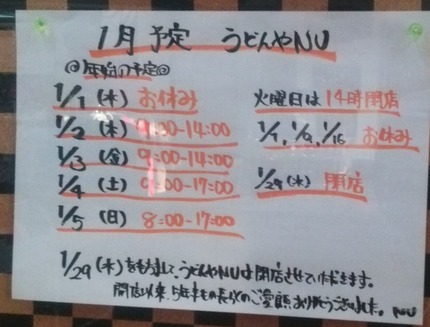 1月 予定 うどんやNU
◎年始の予定◎
1/1 (水) お休み
1/2 (木) 9:30-14:00
1/3 (金) 9:00-14:00
1/4 (土) 9:00-17:00
1/5 (日) 8:00-17:00
火曜日は 14時閉店
1/7, 1/9, 1/15 お休み
1/29(水) 閉店
1/29 (水)をもちまして、うどんやNUは閉店させていただきます。
開店以来、5年もの長い間のご愛顧ありがとうございました。 NU